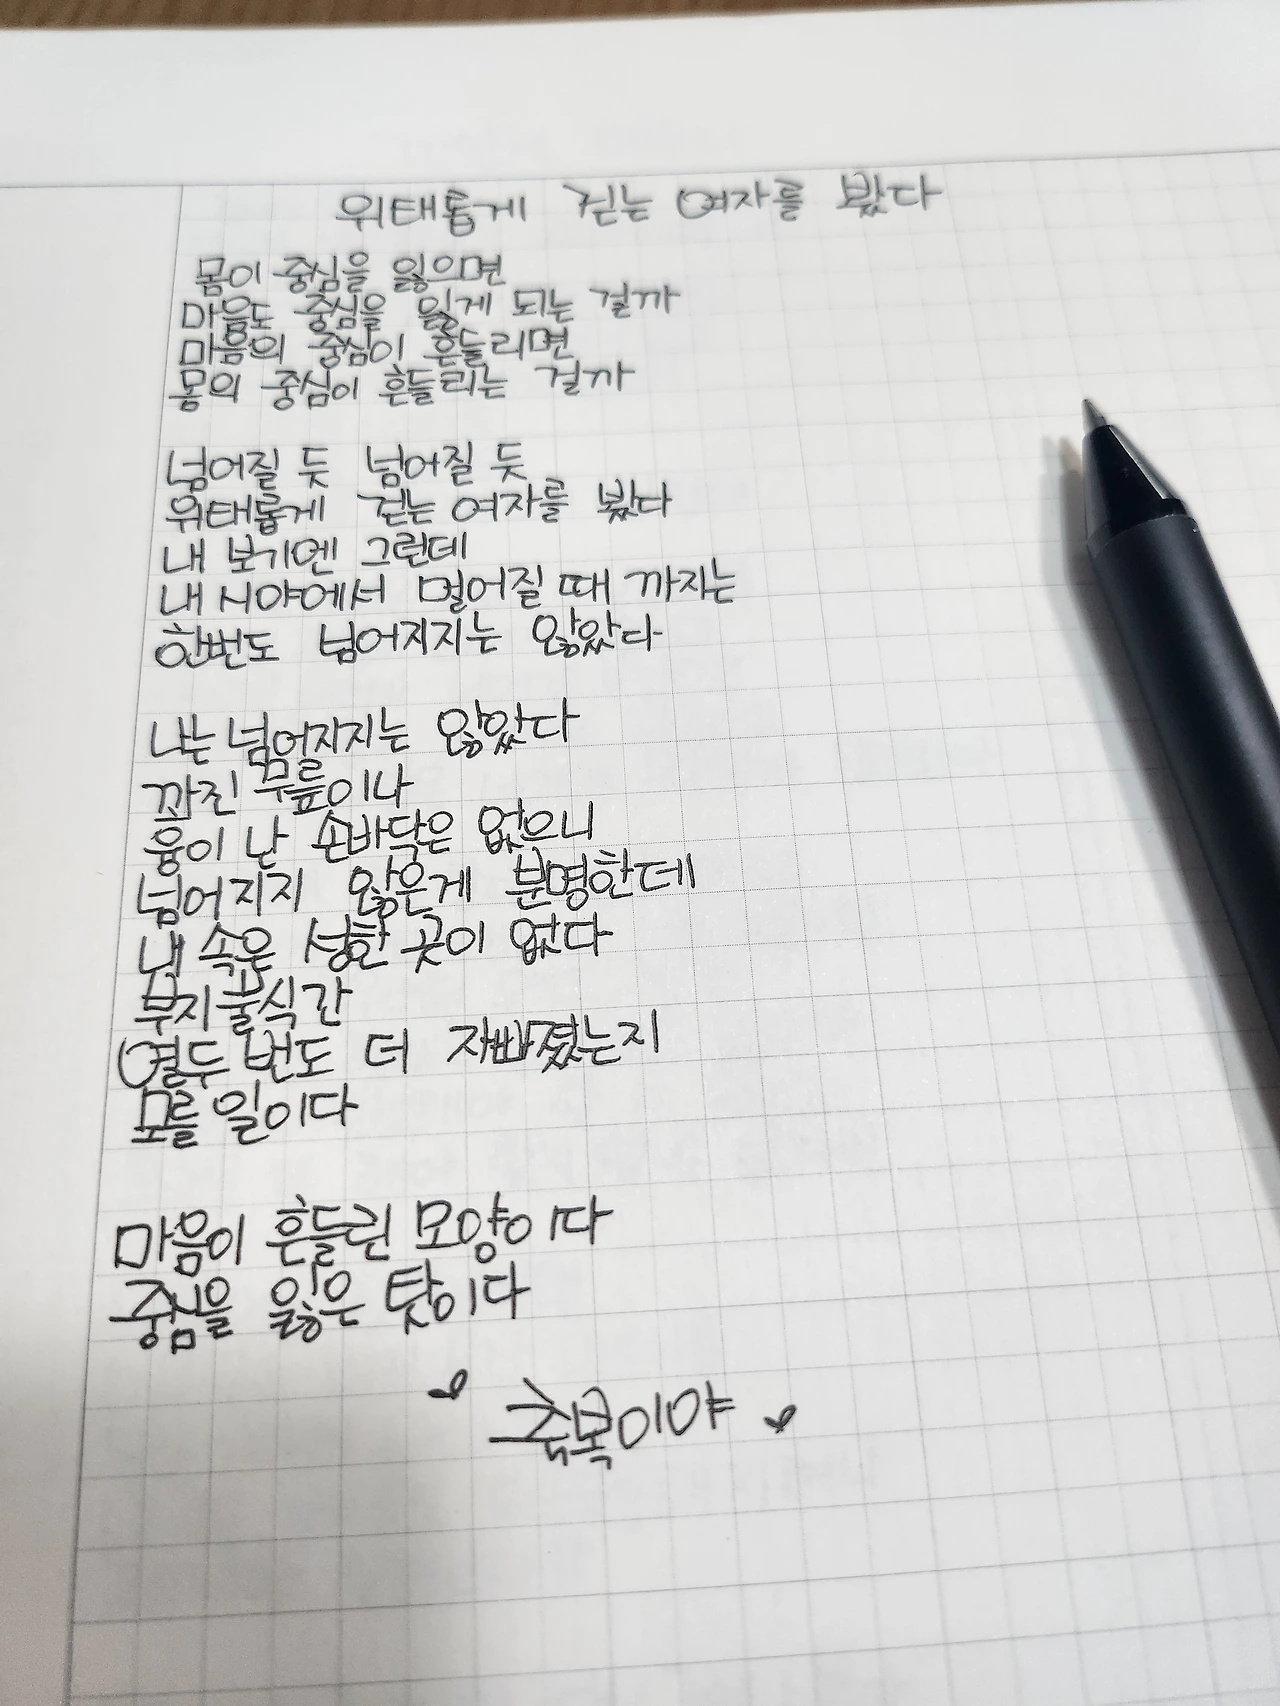 위태롭게 걷는 여자를 봤다
몸이 중심을 잃으면
마음도 중심을 잃게 되는 걸까
마음의 중심이 흔들리면
몸의 중심이 흔들리는 걸까
넘어질 듯 넘어질 듯
위태롭게 걷는 여자를 봤다
내 보기엔 그런데
내 시야에서 멀어질 때 까지는
한번도 넘어지지는 않았다
나는 넘어지지는 않았다
까진 무릎이나
융이 난 손바닥은 없으니
넘어지지 않은게 분명한데
내 속은 성한 곳이 없다
부지불식간
열두 번도 더 자빠졌는지
모를 일이다
마음이 흔들린 모양이다
중심을 잃은 탓이다
축복이야